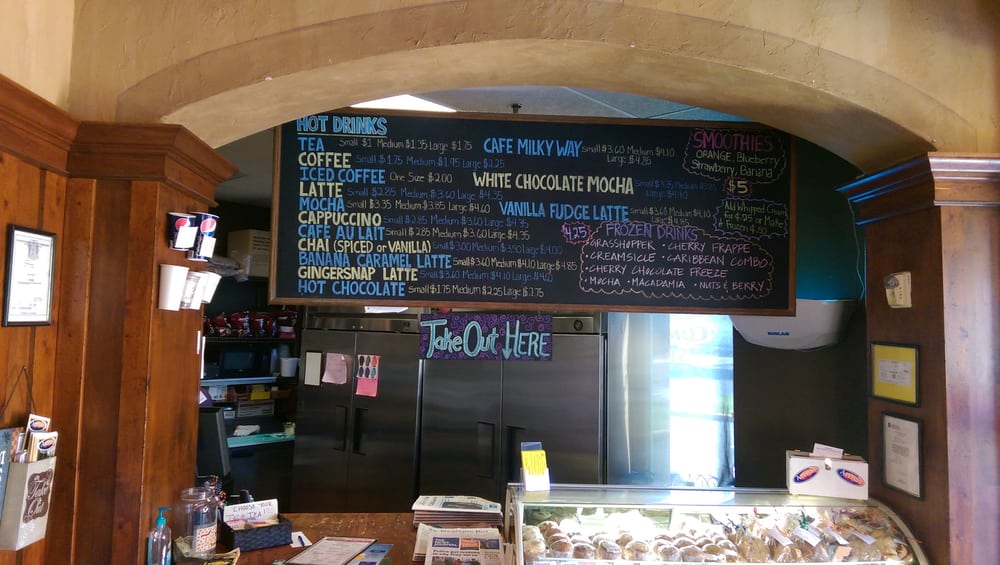 HOT DRINKS
TEA Small $1 Medium $1.35 Large $1.75
COFFEE Small $1.75 Medium $1.95 Large $2.25
ICED COFFEE One Size $2.00
LATTE Small $2.85 Medium $3.60 Large $4.35
MOCHA Small $3.35 Medium $3.85 Large $4.60
CAPPUCCINO Small $2.85 Medium $3.60 Large $4.35
CAFE AU LAIT Small $2.85 Medium $3.60 Large $4.35
CHAI (SPICED or VANILLA) Small $3.00 Medium $3.50 Large $4.00
BANANA CARAMEL LATTE Small $3.60 Medium $4.10 Large $4.85
GINGERSNAP LATTE Small $3.60 Medium $4.10 Large
HOT CHOCOLATE Small $1.75 Medium $2.25 Large $2.75
CAFE MILKY WAY Small $3.60 Medium $4.10
Large $4.85
WHITE CHOCOLATE MOCHA Small $3.35 Medium $3.85
VANILLA FUDGE LATTE Small $3.60 Medium $4.10
Large $4.85
SMOOTHIES
ORANGE, Blueberry
Strawberry, Banana
$5
Add Whipped Cream
for $.25 or Make
it Frozen $.50
4.25 FROZEN DRINKS
GRASSHOPPER • CHERRY FRAPPE
CREAMSICLE • CARIBBEAN COMBO
CHERRY CHOCOLATE FREEZE
MOCHA • MACADAMIA • NUTS & BERRY
Take Out HERE
CHOOSE YOUR
TEA!